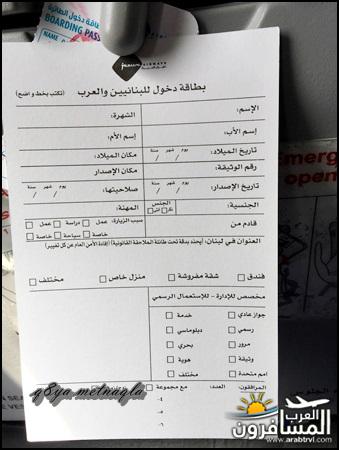 بطاقة دخول الطائرة
BOARDING PASS
AIRWAYS
بطاقة دخول للبنانيين والعرب (تكتب بخط واضح)
الإسم: الشهرة:
إسم الأب: إسم الأم:
تاريخ الميلاد: يوم شهر سنة / / مكان الميلاد:
رقم الوثيقة: مكان الإصدار
تاريخ الإصدار: يوم شهر سنة / / صلاحيتها: يوم شهر سنة / /
الجنسية: الجنس المهنة:
قادم من سبب الزيارة: عمل دراسة عمل خاصة سياحة خاصة
العنوان في لبنان: (يحدد بدقة تحت طائلة الملاحقة القانونية) (إفادة الأمن العام عن كل تغيير)
فندق شقة مفروشة منزل خاص مختلف
مخصص للإدارة - للإستعمال الرسمي
جواز عادي خدمة
رسمي دبلوماسي
مرور بحري
وثيقة هوية
امم متحدة مختلف
المرافقون: العدد: مع مجموعة
-٤
-٥
-٦
Emerge
open
g8ya metnaqla
العرب
المسافرون
www.arabtrvl.com